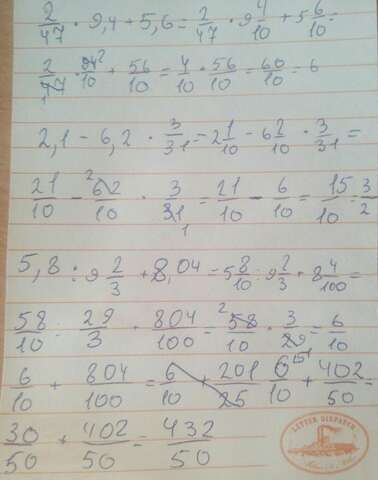 2/47 · 9,4 + 5,6 = 2/47 · 9 4/10 + 5 6/10 =
2/47 · 94/10 + 56/10 = 4/10 · 56/10 = 60/10 = 6
2,1 - 6,2 · 3/31 = 2 1/10 - 6 2/10 · 3/31 =
21/10 - 62/10 · 3/31 = 21/10 - 6/10 = 15/10 = 3/2
5,8 : 9 2/3 + 8,04 = 5 8/10 : 9 2/3 · 8 4/100 =
58/10 : 29/3 · 804/100 = 58/10 · 3/29 = 6/10
6/10 + 804/100 = 6/10 + 201/25 6/10 + 402/50 =
30/50 + 402/50 = 432/50
LETTER DISPATCH